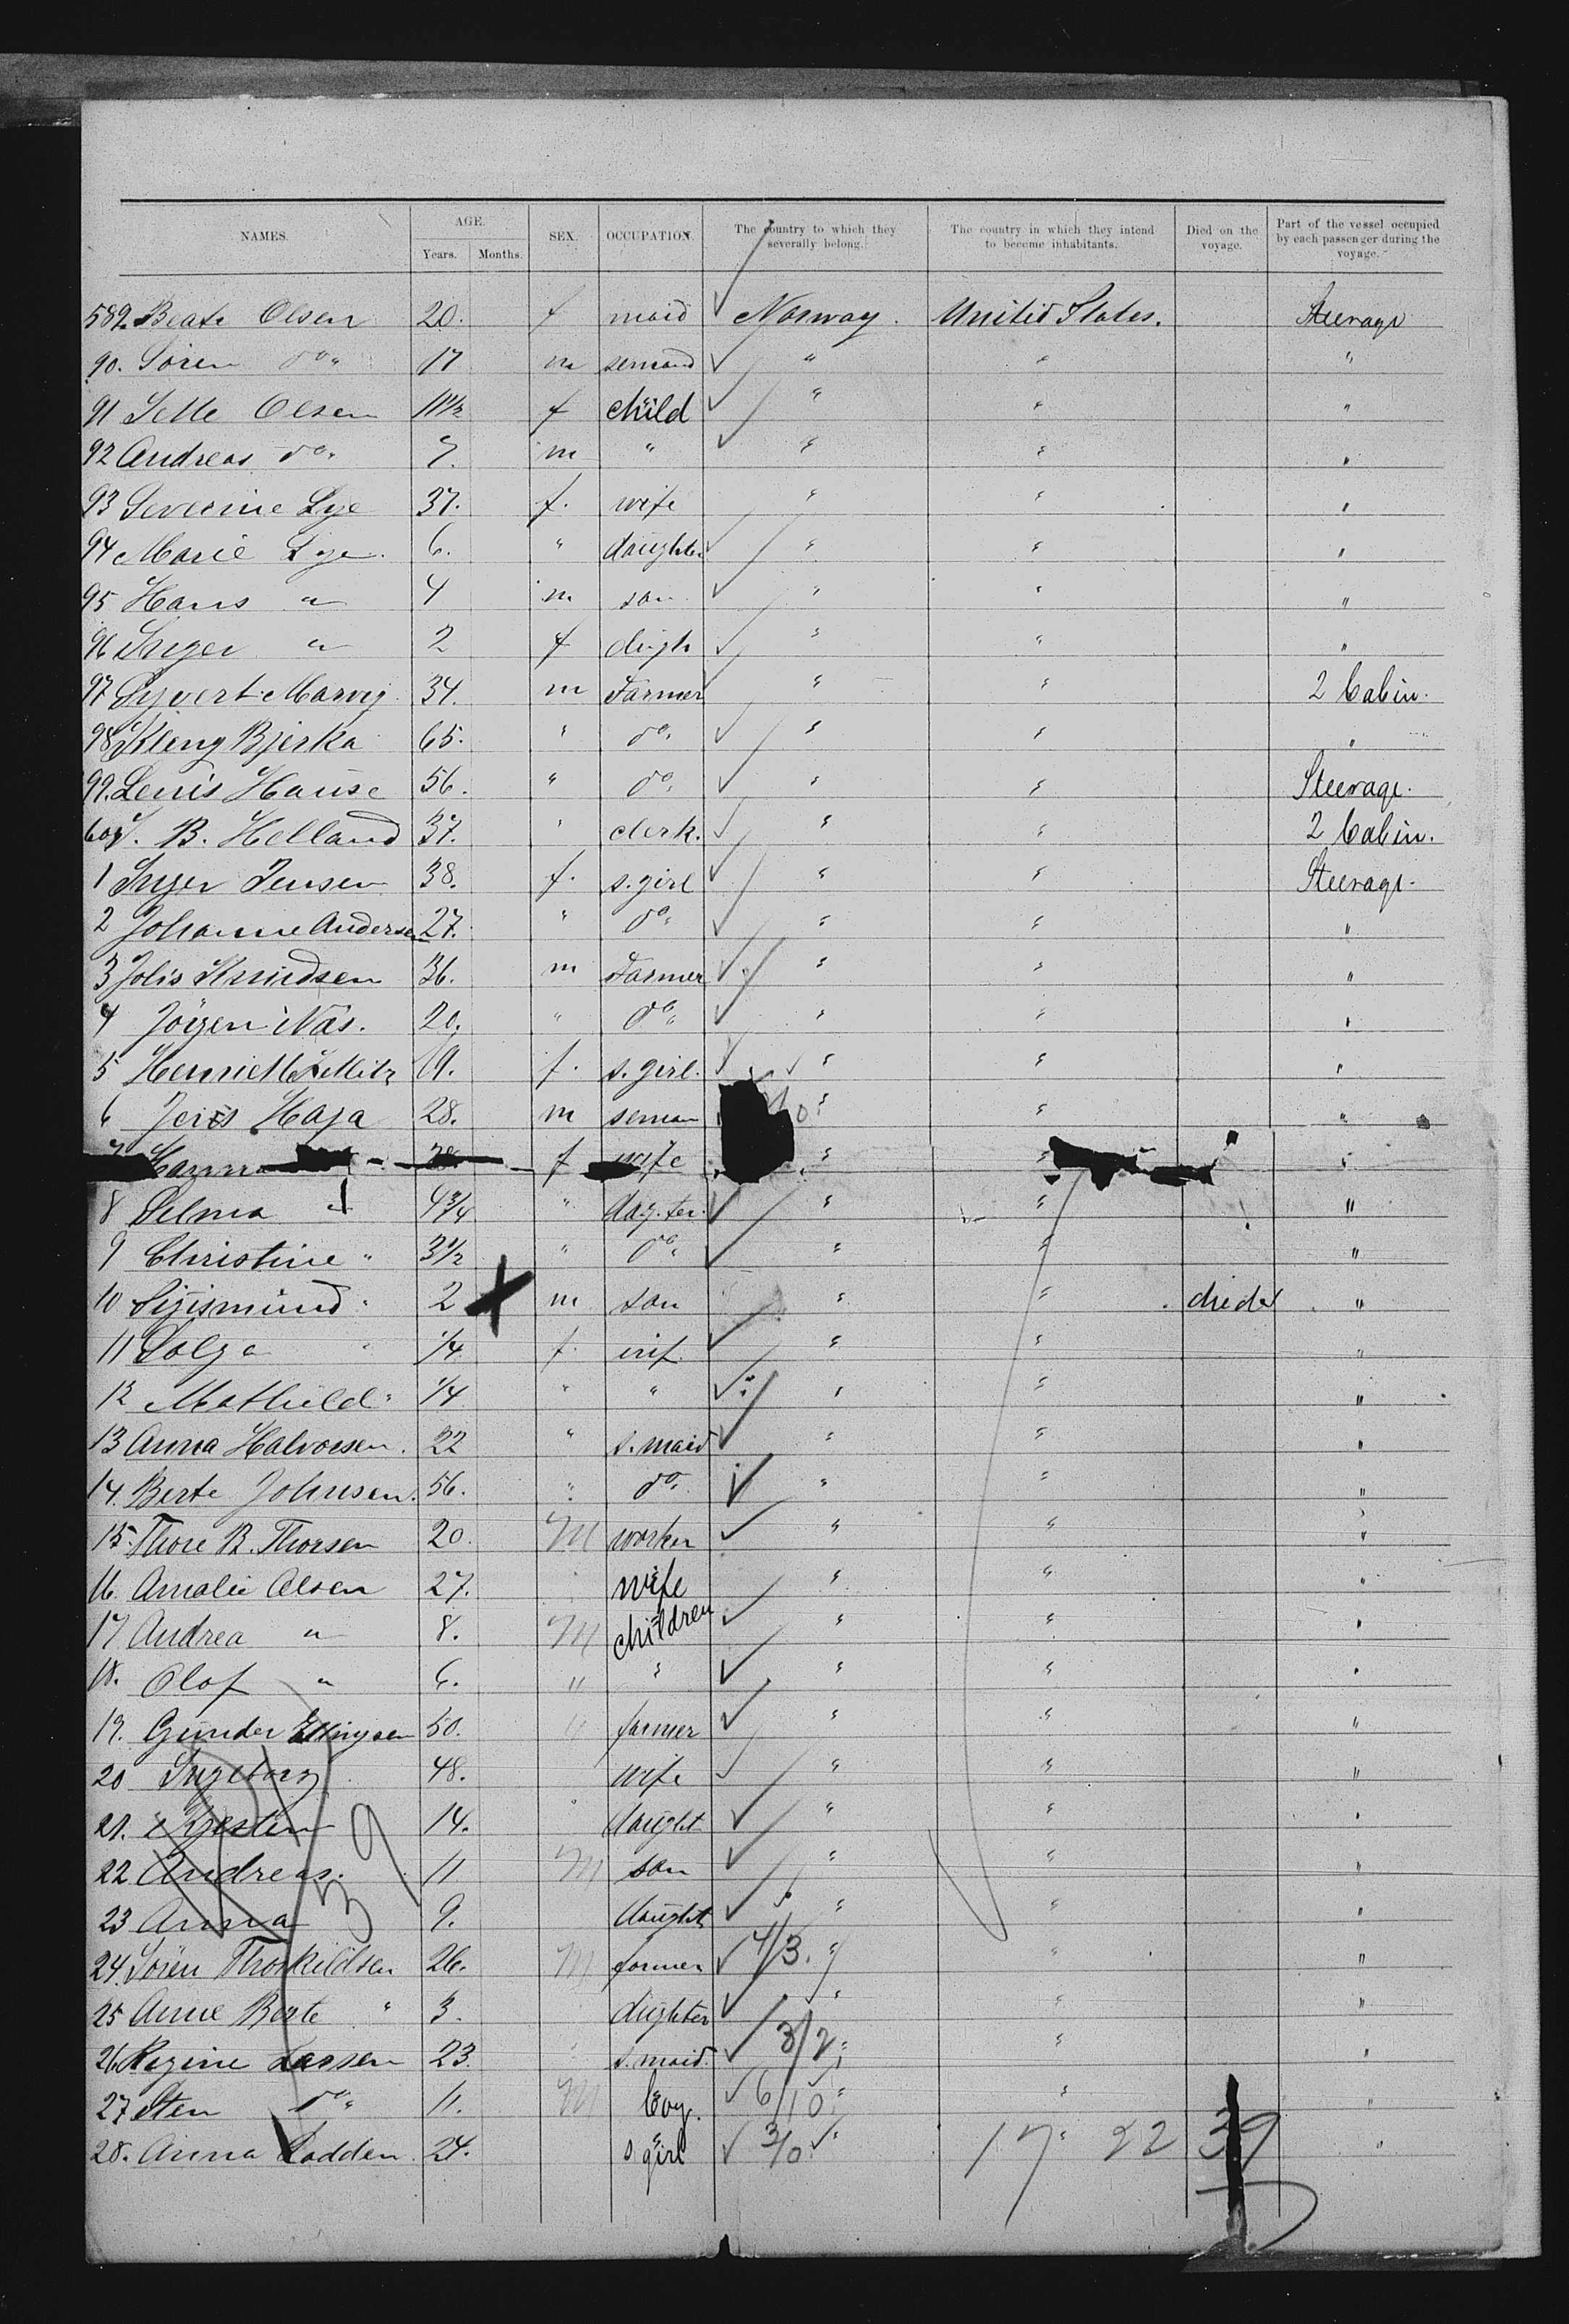 NAMES. AGE. SEX. OCCUPATION. The country to which they severally belong. The country in which they intend to become inhabitants. Died on the voyage. Part of the vessel occupied by each passenger during the voyage.
Years. Months.
589. Beate Olsen 20. f maid Norway. United States. Steerage
90. Sören do " 17 m " " "
91 Olsen 11 1/2 f child " " "
92 Andreas do " 7. m " " " "
93 Severine Lye 37. f. wife " " "
94 Marie Lye. 6. " daughter " " "
95 Hans " 4 m son " " "
96 Inger " 2 f " " "
97 Syvert 34. m Farmer " " 2 Cabin.
98 Kleng Bjerka 65. " do " " " "
99. Hause 56. " do " " " Steerage.
B. Helland 37. " clerk. " " 2 Cabin.
1 Inger Jensen 38. f. s. girl " " Steerage.
2 Johanne Andersen 27. " do " " " "
3 Knudsen 36. m Farmer " " "
4 Jörgen Näs. 20. " do " " " "
5 19. f. s. girl. " " "
6 Haga 28. m seman " " "
7 f wife " " "
8 Selma " 4 3/4 " dag. ter. " " "
9 Christine " 3 1/2 " do " " " "
10 Sigismund " 2 m son " " died "
11 Solga " 1/4 f. inf. " " "
12 Mathild " 1/4 " " " " "
13 Anna Halvorsen. 22 " s. maid " " "
14. Berte Johnsen. 56. " do " " " "
15. Thore B. Thorsen 20. M worker " " "
16. Amalie Olsen 27. wife " " "
17 Andrea " 8. M children " " "
18. Olof " 6. " " " " "
19. Gunder Ellingsen 50. " farmer " " "
20 Ingeborg 48. wife " " "
21. 14. daught " " "
22 Andreas. 11 M son " " "
23 Anna 9. daught " " "
24 Sören Thorkildsen 26. M farmer 4/3. " " "
25 Anne Berte " 3. dughter " " "
26 Regine Larsen 23. s. maid. 3/2 " " "
27 Sten do " 11. M boy. 6/10 " " "
28. Anna Lodden 24. s girl 3/0 " 17 " 22 39 "
39